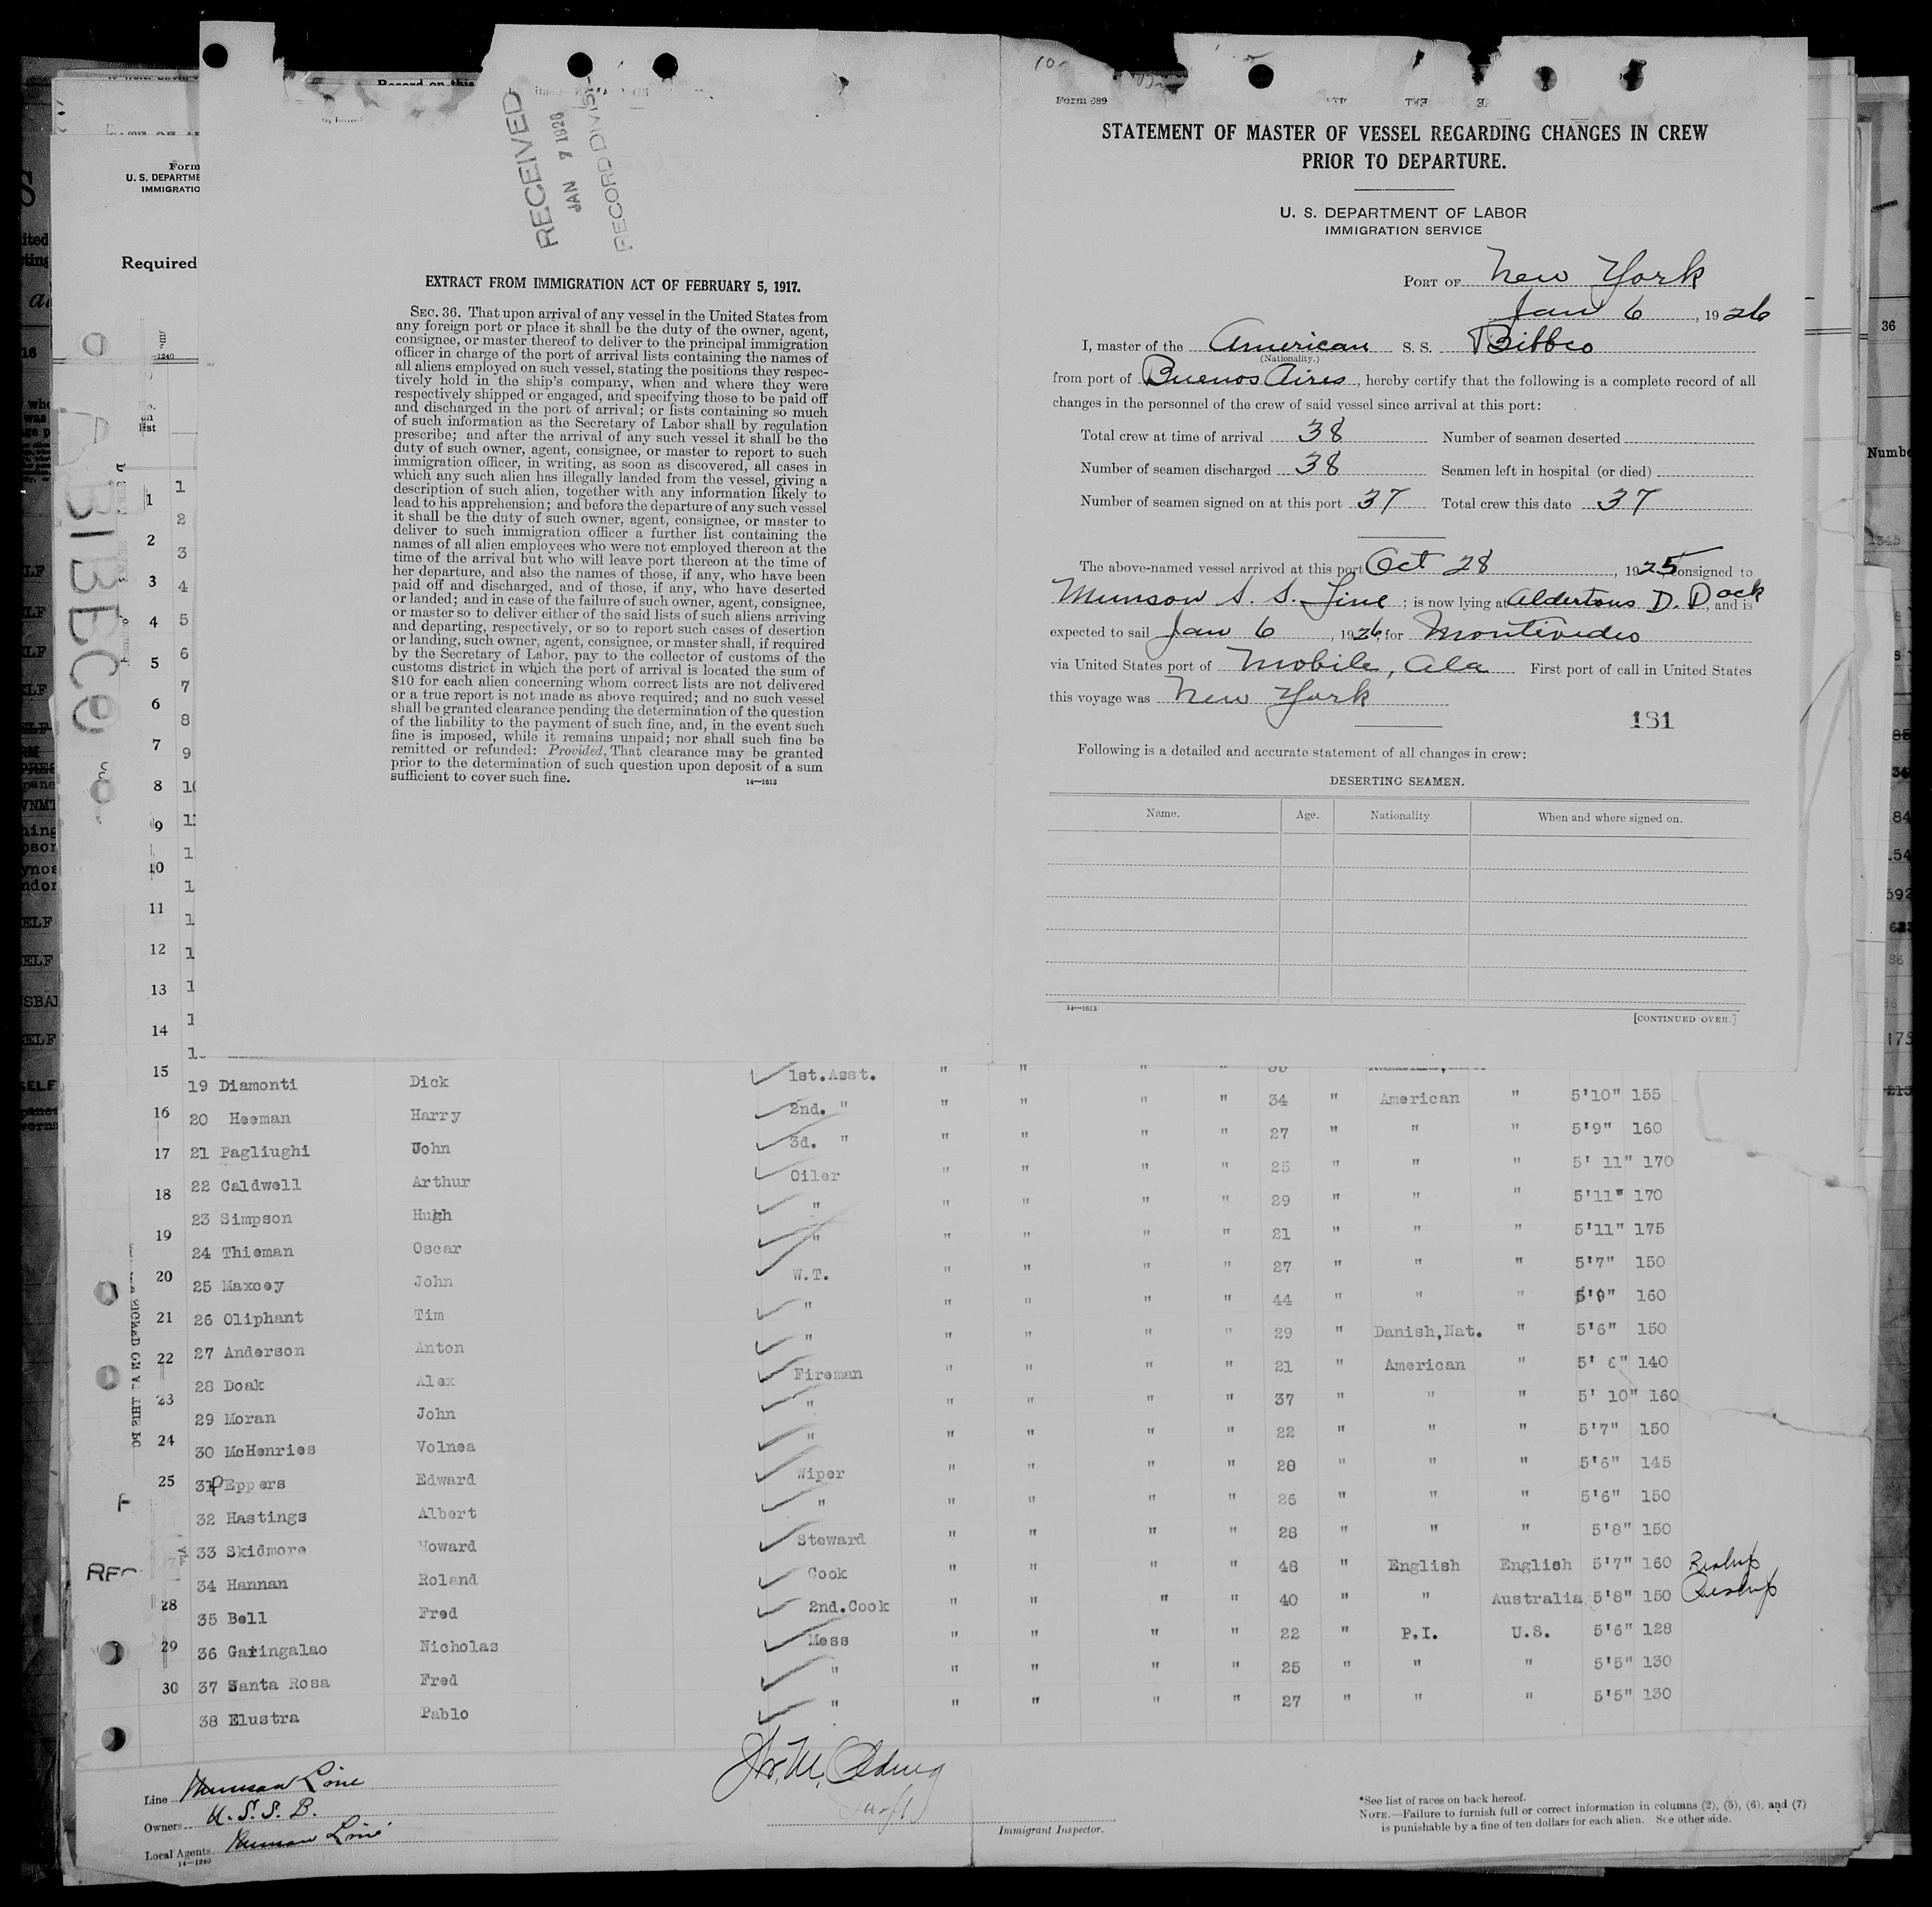 RECEIVED
JAN 7 1926
RECORD DIVIS
EXTRACT FROM IMMIGRATION ACT OF FEBRUARY 5, 1917.
SEC. 36. That upon arrival of any vessel in the United States from
any foreign port or place it shall be the duty of the owner, agent,
consignee, or master thereof to deliver to the principal immigration
officer in charge of the port of arrival lists containing the names of
all aliens employed on such vessel, stating the positions they respec-
tively hold in the ship's company, when and where they were
respectively shipped or engaged, and specifying those to be paid off
and discharged in the port of arrival; or lists containing so much
of such information as the Secretary of Labor shall by regulation
prescribe; and after the arrival of any such vessel it shall be the
duty of such owner, agent, consignee, or master to report to such
immigration officer, in writing, as soon as discovered, all cases in
which any such alien has illegally landed from the vessel, giving a
description of such alien, together with any information likely to
lead to his apprehension; and before the departure of any such vessel
it shall be the duty of such owner, agent, consignee, or master to
deliver to such immigration officer a further list containing the
names of all alien employees who were not employed thereon at the
time of the arrival but who will leave port thereon at the time of
her departure, and also the names of those, if any, who have been
paid off and discharged, and of those, if any, who have deserted
or landed; and in case of the failure of such owner, agent, consignee,
or master so to deliver either of the said lists of such aliens arriving
and departing, respectively, or so to report such cases of desertion
or landing, such owner, agent, consignee, or master shall, if required
by the Secretary of Labor, pay to the collector of customs of the
customs district in which the port of arrival is located the sum of
$10 for each alien concerning whom correct lists are not delivered
or a true report is not made as above required; and no such vessel
shall be granted clearance pending the determination of the question
of the liability to the payment of such fine, and, in the event such
fine is imposed, while it remains unpaid; nor shall such fine be
remitted or refunded: Provided, That clearance may be granted
prior to the determination of such question upon deposit of a sum
sufficient to cover such fine. 14—1613
Form 689
STATEMENT OF MASTER OF VESSEL REGARDING CHANGES IN CREW
PRIOR TO DEPARTURE.
U. S. DEPARTMENT OF LABOR
IMMIGRATION SERVICE
PORT OF New York
Jan 6, 1926
I, master of the American S. S. Bibbco
(Nationality.)
from port of Buenos Aires, hereby certify that the following is a complete record of all
changes in the personnel of the crew of said vessel since arrival at this port:
Total crew at time of arrival 38 Number of seamen deserted
Number of seamen discharged 38 Seamen left in hospital (or died)
Number of seamen signed on at this port 37 Total crew this date 37
The above-named vessel arrived at this port Oct 28, 1925 consigned to
Munson S. S. Line; is now lying at Aldertons D. Dock, and is
expected to sail Jan 6, 1926, for Montivedeo
via United States port of Mobile, Ala First port of call in United States
this voyage was New York
131
Following is a detailed and accurate statement of all changes in crew:
DESERTING SEAMEN.
Name. Age. Nationality. When and where signed on.
14—1613
[CONTINUED OVER.]
19 Diamonti Dick 1st.Asst. " " " "
20 Heeman Harry 2nd. " " " " " 34 " American " 5'10" 155
21 Pagliughi John 3d. " " " " " 27 " " " 5'9" 160
22 Caldwell Arthur Oiler " " " " 25 " " " 5' 11" 170
23 Simpson Hugh " " " " " 29 " " " 5'11" 170
24 Thieman Oscar " " " " " 21 " " " 5'11" 175
25 Maxcey John W.T. " " " " 27 " " " 5'7" 150
26 Oliphant Tim " " " " " 44 " " " 5'9" 160
27 Anderson Anton " " " " " 29 " Danish,Nat. " 5'6" 150
28 Doak Alex Fireman " " " " 21 " American " 5' 6" 140
29 Moran John " " " " " 37 " " " 5' 10" 160
30 McHenries Volnea " " " " " 22 " " " 5'7" 150
31 Eppers Edward Wiper " " " " 20 " " " 5'6" 145
32 Hastings Albert " " " " " 26 " " " 5'6" 150
33 Skidmore Howard Steward " " " " 28 " " " 5'8" 150
34 Hannan Roland Cook " " " " 48 " English English 5'7" 160
35 Bell Fred 2nd.Cook " " " " 40 " " Australia 5'8" 150
36 Garingalao Nicholas Mess " " " " 22 " P.I. U.S. 5'6" 128
37 Santa Rosa Fred " " " " " 25 " " " 5'5" 130
38 Elustra Pablo " " " " " 27 " " " 5'5" 130
Line Munson Line
Owners U. S. S. B.
Local Agents Munson Line
14—1240
Immigrant Inspector.
*See list of races on back hereof.
NOTE.—Failure to furnish full or correct information in columns (2), (5), (6), and (7)
is punishable by a fine of ten dollars for each alien. See other side.
Form
U. S. DEPARTME
IMMIGRATIO
Required